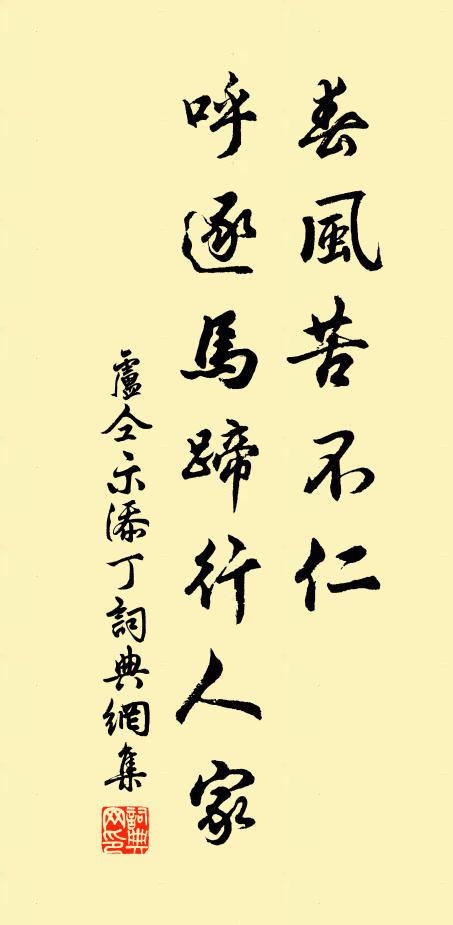 春風苦不仁
呼逐馬蹄行人家
盧仝示添丁詞典網集
詞典网印